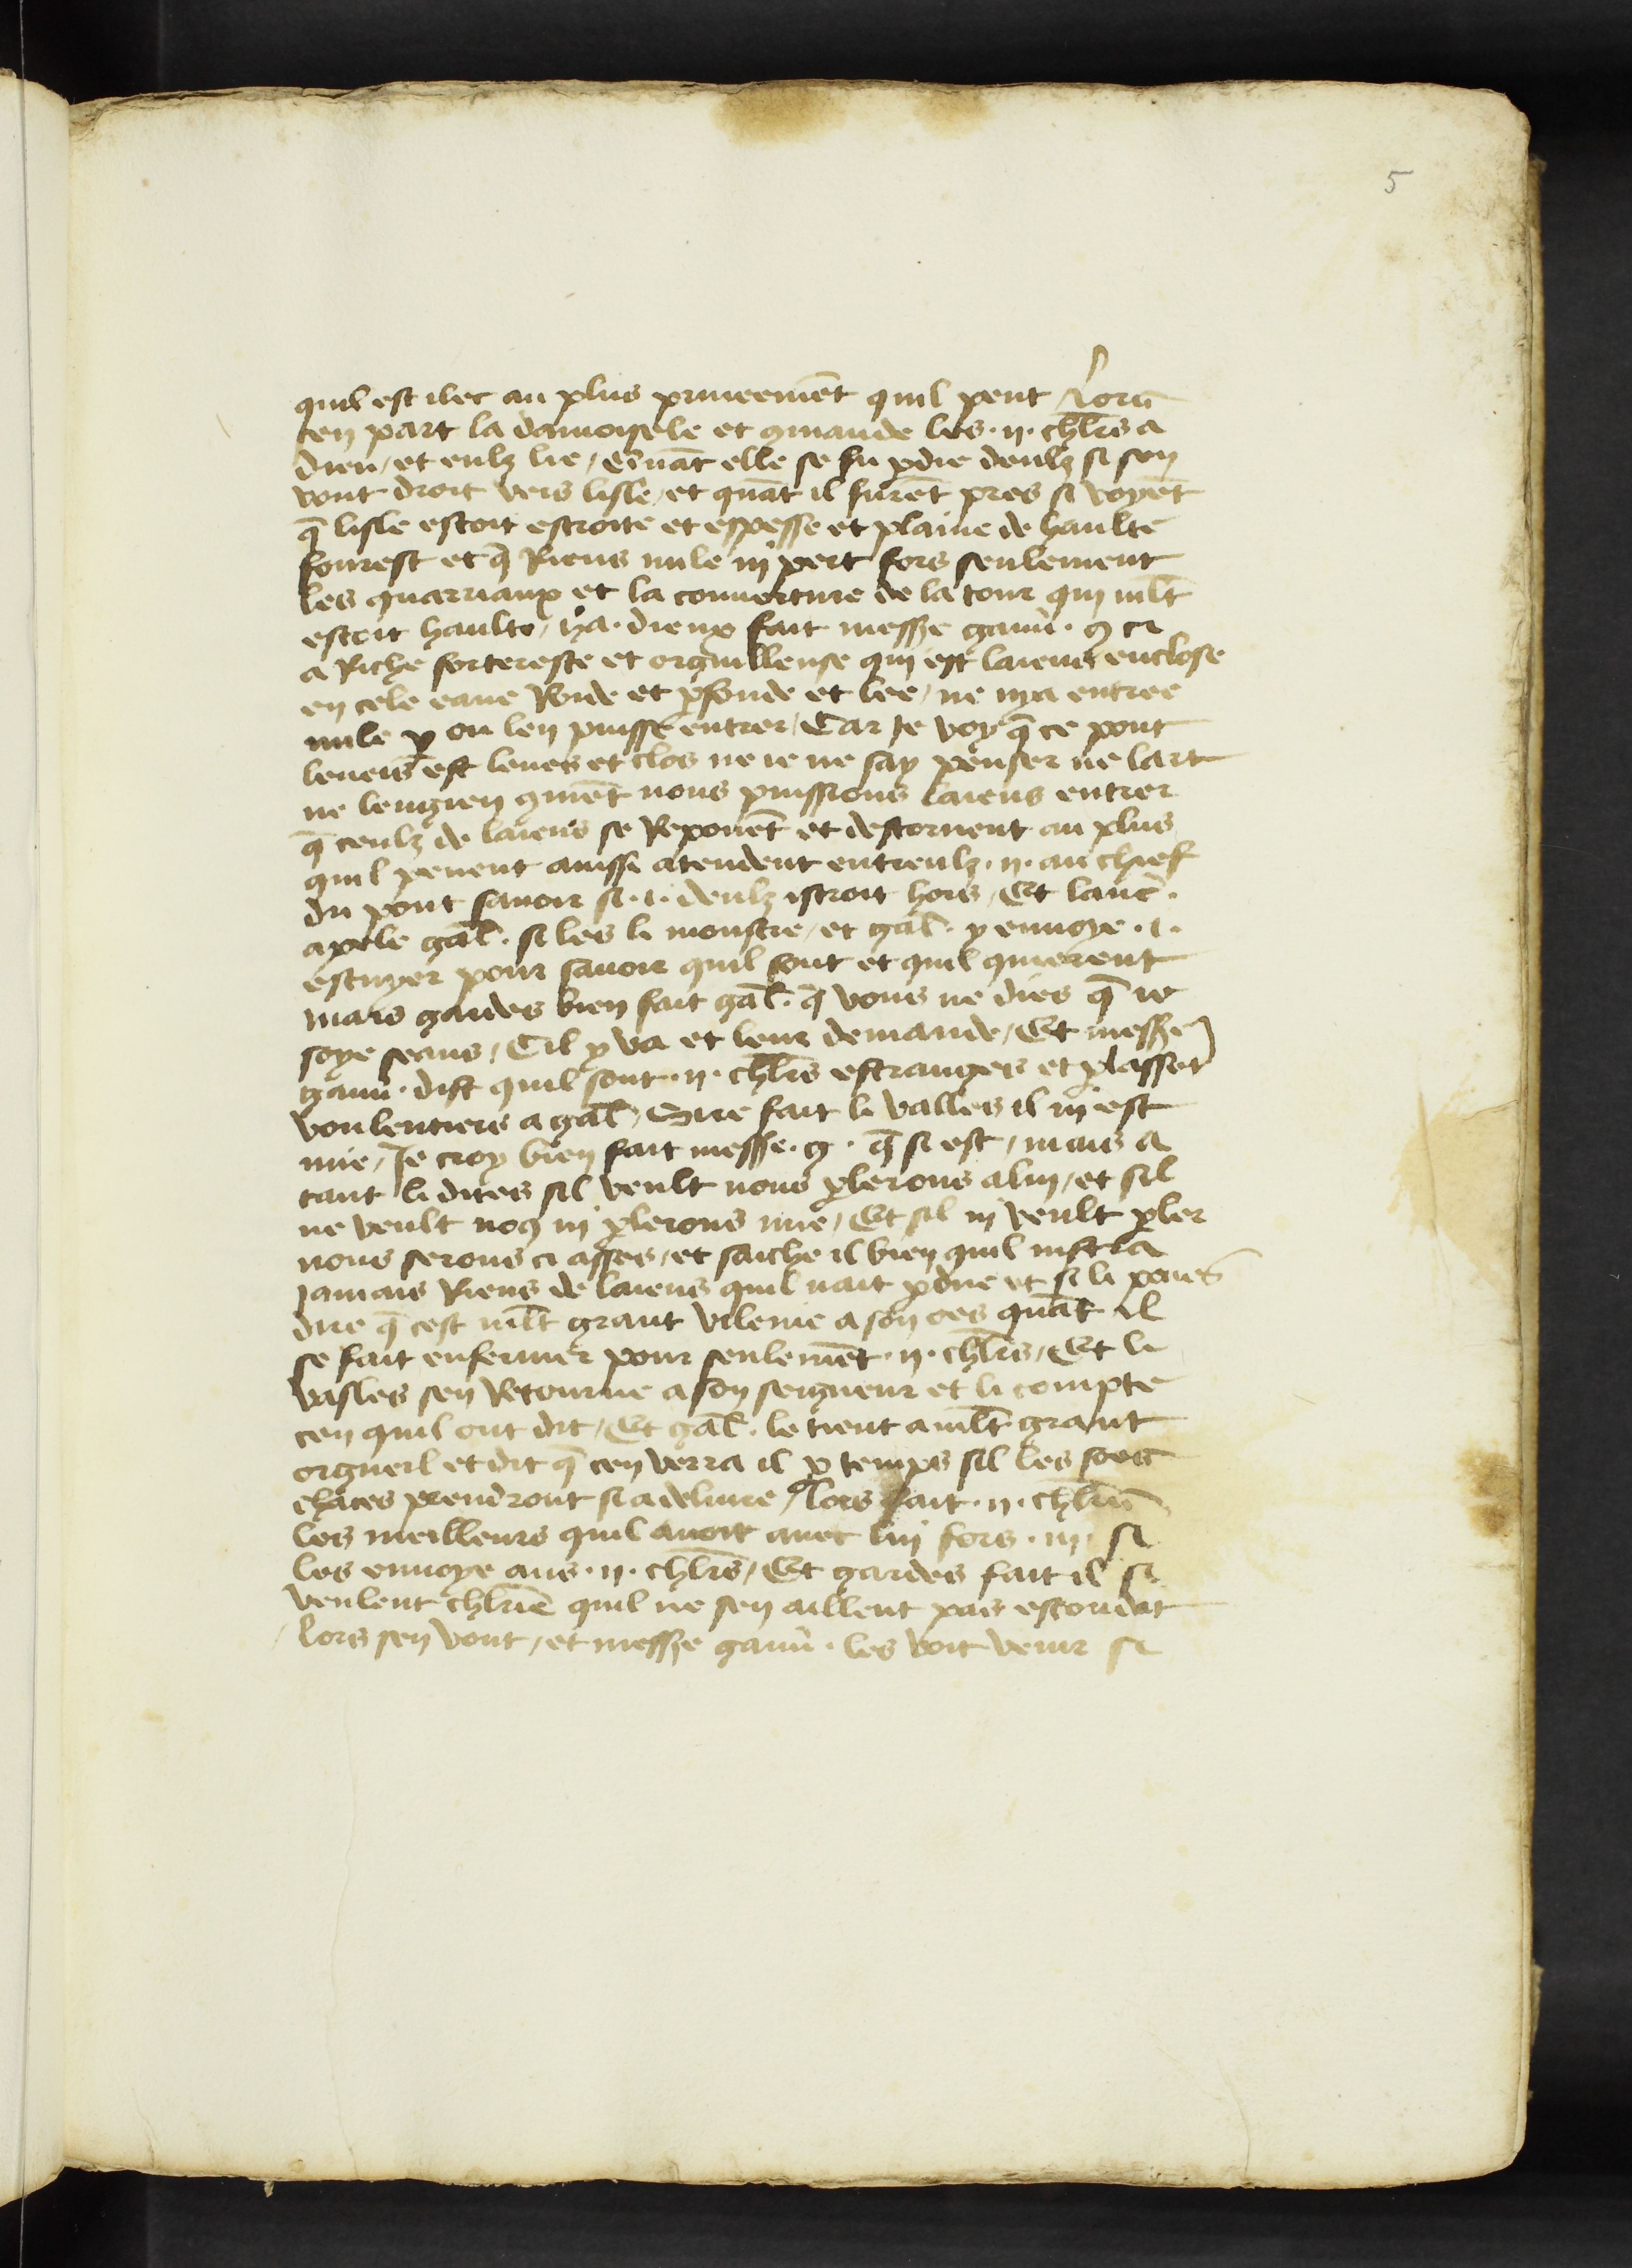 5
quil est ilec au plus priueemēt quil peut / Lors
sen part la damoisele et ꝯmande les .ii. chlr̄s a
dieu / et eulz lie / Quāt elle se fu ꝑdie deulz si sen
vont droit vers lisle / et quāt il furēt pres si voyēt
q̄ lisle estoit estroite et espesse et plaine de haulte
fourest et q̄ Riens nule ni pert fors seulement
les quarriaux et la couuerture de la tour qui ml̄t
estoit haulte / ha . dieux fait messʒe gauu̅ . ꝯ ci
a Riche fortereste et orguilleuse qui est laiens enclose
en cele eaue Roide et ꝑfonde et lee / ne nya entree
nule ꝑ ou len puisse entrer / Car ie voy q̄ ce pont
leueis est leues et clos ne ie ne say penser ne lart
ne lengien ꝯmēt nous puissions laiens entrer
q̄ ceulz de laiens se Reponēt et destornent au plus
quil peuent ainssi atendent entreulz .ii. au chief
du pont sauoir si .i. deulz istroit hors / Et lanc̄ .
apele gal̄ . si les li monstre / et gal̄ . y enuoye .i.
escuyer pour sauoir quil sont et quil quierent
mais gardes bien fait gal̄ . q̄ vous ne dies q̄ ie
soye seans / Cil y va et leur demande / Et messʒe
gauu̅ . dist quil sont .ii. chlr̄s estranges et ꝑlassēt
voulentiers a gal̄ / Sire fait li valles il ni est
mie / Je croy bien fait messʒe . g . q̄ si est / mais a
tant li dites sil veult nous ꝑlerons a lui / et sil
ne veult noꝯ ni ꝑlerons mie / Et sil ni veult ꝑler
nous serons ci asses / et saiche il bien quil nistra
jamais Riens de laiens quil nait ꝑdue et si li poues
dire q̄ cest ml̄t grant vilenie a son oes quāt il
se fait enfermer pour seulemēt .ii. chlr̄s / Et li
vasles sen Retourne a son seigneur et li compte
cen quil ont dit / Et gal̄ . le tient a ml̄t grant
orgueil et dit q̄ cen verra il ꝑ temps sil les
chāces prendront si a deliure / lors fait .ii. chlr̄s
les meilleurs quil auoit auec lui fors .iii. si
les enuoye aus .ii. chlr̄s / Et gardes fait il si
veulent chlr̄ie quil ne sen aillent pas escondit
lors sen vont / et messʒe gauu̅ . les voit venir si